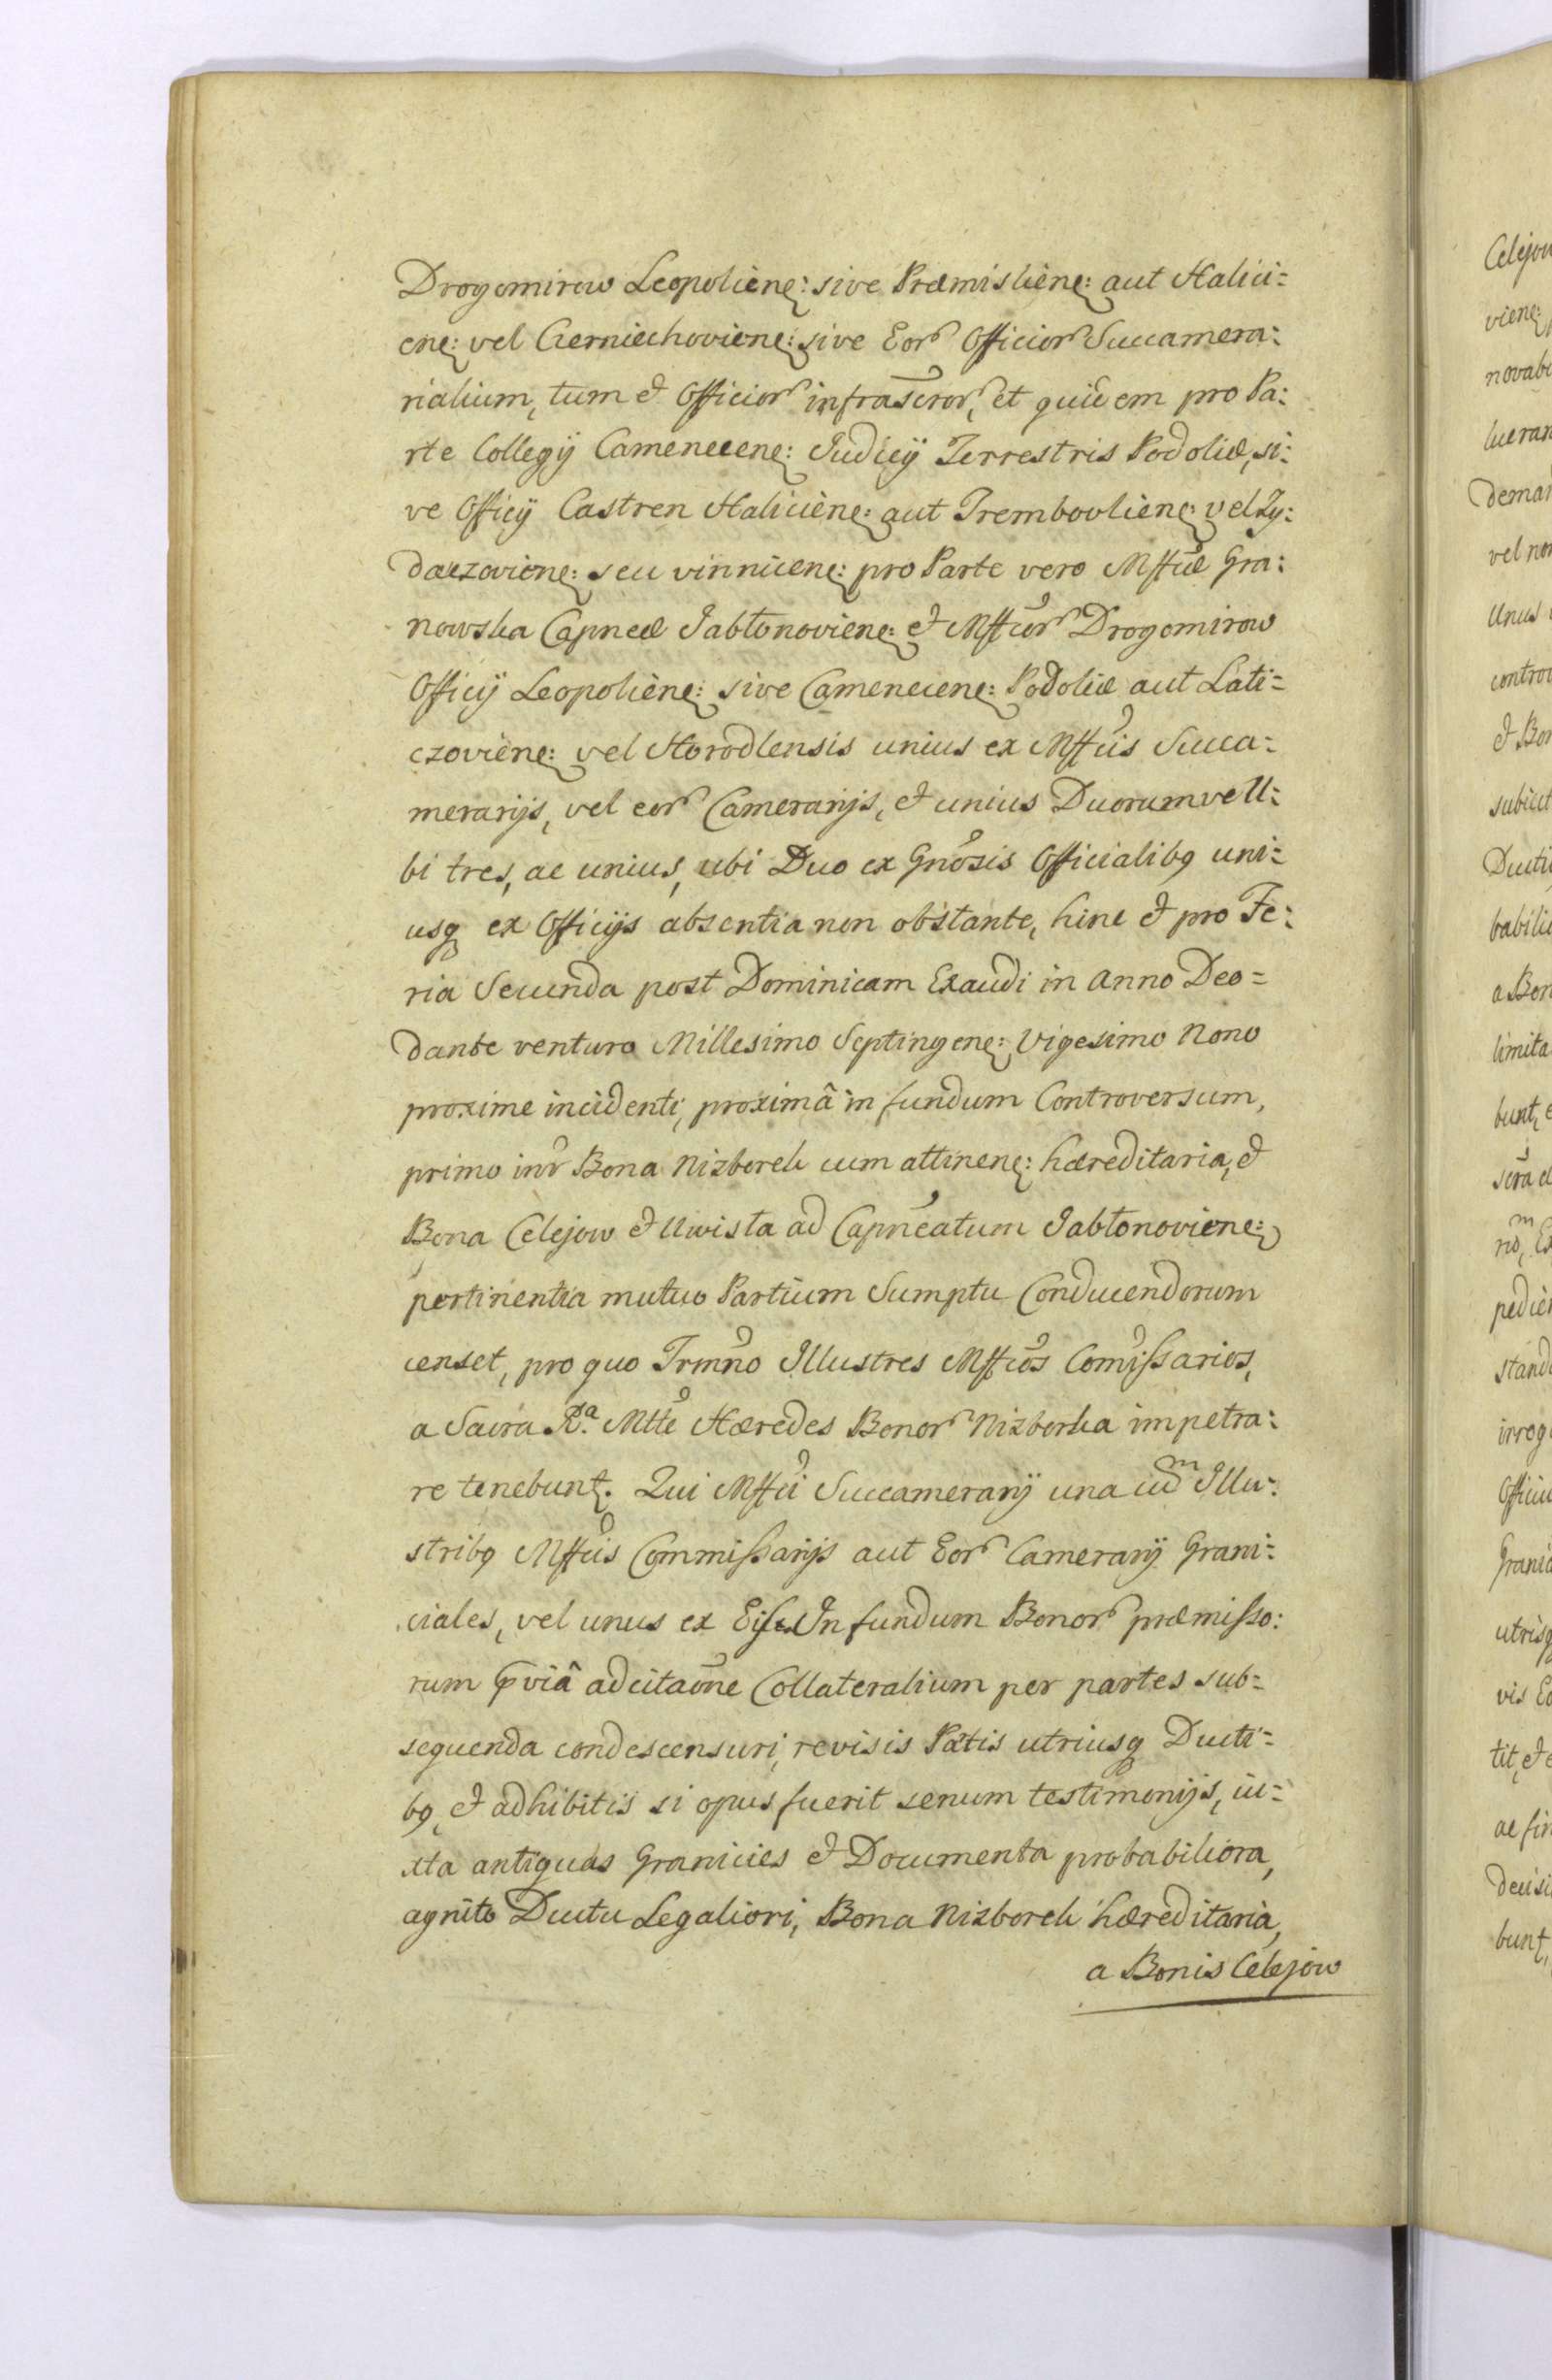 Drogomirow Leopoliene: sive Præmisliene: aut Halici=
ene: vel Czerniechoviene: sive Eor Officior Succamera:
rialium, tum et Officior infrascror, et quidem pro Pa:
rte Collegij Camenecene: Judicij Terrestris Podoliæ, si:
ve Officij Castren Haliciene: aut Trembovliene: vel Zy:
daczoviene: seu vinnicene: pro Parte vero Mffcæ Gra:
nowska Capneæ Jabłonoviene: et Mffcor Drogomirow
Officij Leopoliene: sive Camenecene: Podoliæ aut Lati=
czoviene: vel Horodlensis unius ex Mffcis Succa=
merarijs, vel eor Camerarijs, et unius Duorumve U:
bi tres, ac unius, ubi Duo ex Gnosis Officialibq uni=
usq ex Officijs absentia non obstante, hinc et pro Fe:
ria Secunda post Dominicam Exaudi in Anno Deo=
dante venturo Millesimo Septingene: Vigesimo Nono
proxime incidenti, proximâ in fundum Controversum,
primo intr Bona Nizborek cum attinene: hæreditaria, et
Bona Celejow et Uwisla ad Capneatum Jabłonoviene:
pertinentia mutuo Partium Sumptu Conducendorum
censet, pro quo Trmno Illustres Mffcos Comissarios,
a Sacra Ra. Mtte Hæredes Bonor Nizborka impetra:
re tenebunt. Qui Mffci Succamerarij una cum Illu:
stribq Mffcis Commissarijs aut Eor Camerarij Grani:
ciales, vel unus ex Eisd In fundum Bonor præmisso:
rum pviâ adcitaone Collateralium per partes sub=
sequenda condescensuri, revisis Partis utriusq Ducti=
bq, et adhibitis si opus fuerit senum testimonijs, iu=
xta antiquas Granicies et Documenta probabiliora,
agnito Ductu Legaliori, Bona Nizborek hæreditaria,
a Bonis Celejow
Celejow
viene:
novabi
lueran
deman
vel non
Unus
controv
et Bon
subiect
Ducti
babili
a Bon
limita
bunt, e
scra
pedien
stand
irrog
Officii
Granic
utrisq
vis Eo
tit, et
ac fin
decisi
bunt,